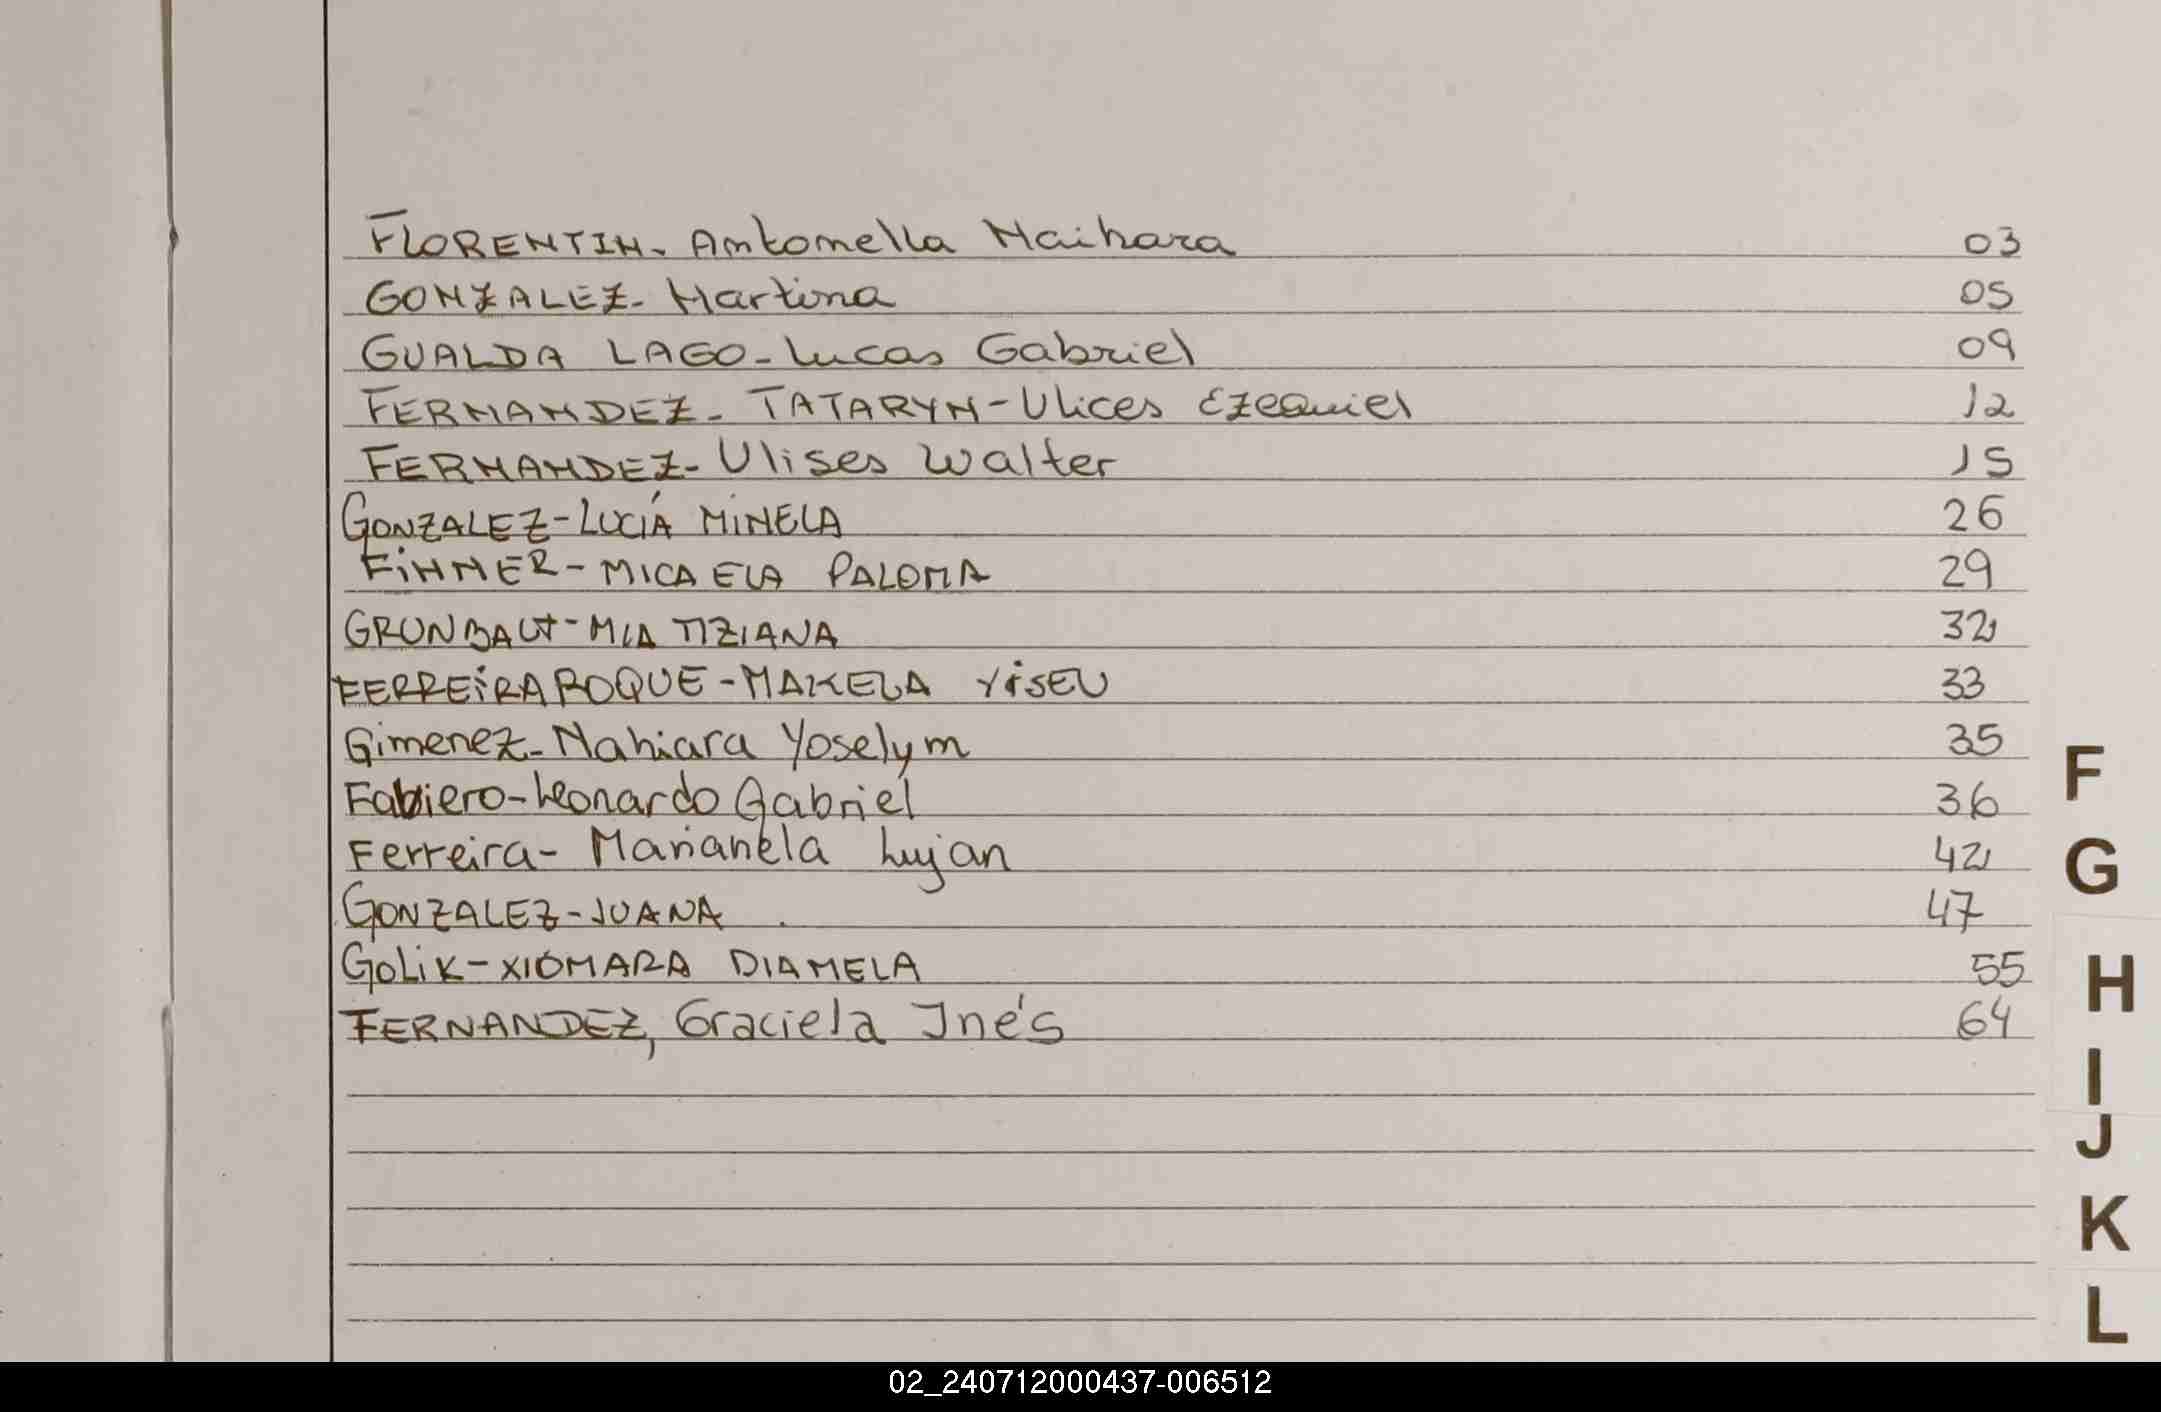 FLORENTIN- Antonella Naihara 03
GONZALEZ- Martina 05
GUALDA LAGO- Lucas Gabriel 09
FERNANDEZ- TATARYN- Ulices Ezequiel 12
FERNANDEZ- Ulises Walter 15
GONZALEZ-LUCÍA MINELA 26
FIHNER- MICAELA PALOMA 29
MIA TIZIANA 32
FERREIRA ROQUE-MAKELA 33
Gimenez- Nahiara Yoselym 35
Fabiero-Leonardo Gabriel 36
Ferreira- Marianela Lujan 42
GONZALEZ-JUANA 47
GOLIK-XIOMARA DIAMELA 55
FERNANDEZ, Graciela Inés 64
F
G
H
I
J
K
L
02_240712000437-006512